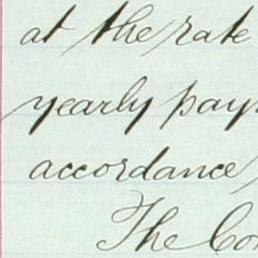 at the rate
yearly pay
accordance
The Co